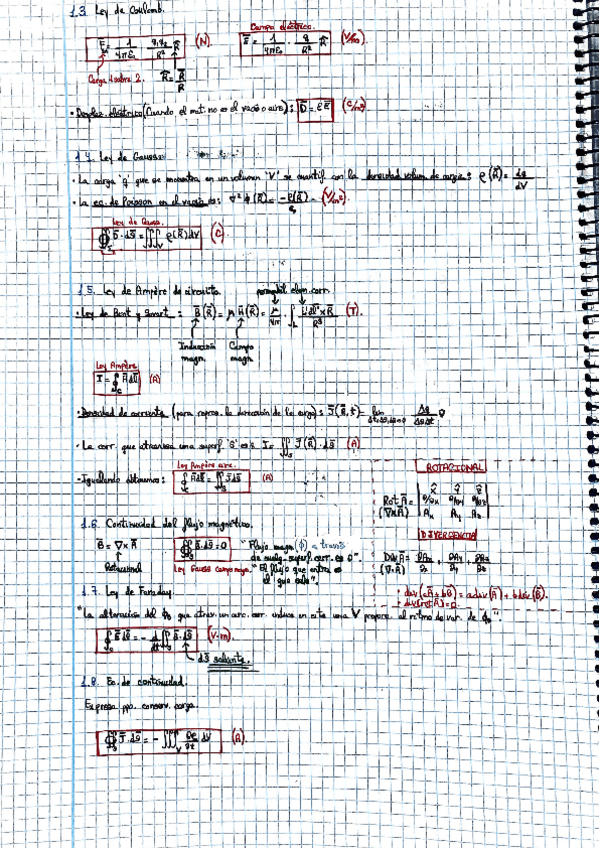 1.3. Ley de Coulomb.
Campo eléctrico.
F̄ₑ = 1/4πε₀ · q₁q₂/R² R̂ (N).
Ē = 1/4πε₀ · q/R² R̂ (V/m).
Carga 1 sobre 2. R̂ = R̄/R
• Desplaz. eléctrico (Cuando el mat. no es el vacío o aire): D̄ = εĒ (C/m²)
1.4. Ley de Gauss.
• La carga "q" que se encuentra en un volumen "V" se cuantif. con la densidad volum. de carga: ρ(R̄) = dq/dV
• La ec. de Poisson en el vacío es: ∇²ϕ(R̄) = -ρ(R̄)/ε₀ (V/m²).
Ley de Gauss.
∯ D̄·ds̄ = ∭ᵥ ρ(R̄)dV (C)
1.5. Ley de Ampère de circuits
permeabil. elem. corr.
• Ley de Biot y Savart: B̄(R̄) = μ H̄(R̄) = μ/4π · ∫ (T).
Inducción magn. Campo magn.
Ley Ampère
I = ∮c H̄ dl̄ (A)
• Densidad de corriente (para repres. la dirección de la carga): J̄(R̄,t) = lim Δq/ΔsΔt
• La corr. que atraviesa una superf. "S" es: I = ∬s J̄(R̄)·ds̄ (A)
Ley Ampère circ.
• Igualando últimas: ∮c H̄dl̄ = ∬s J̄ds̄ (A)
ROTACIONAL
Rot Ā = (∇xĀ)
x̂ ŷ ẑ
∂/∂x ∂/∂y ∂/∂z
Aₓ Aᵧ A_z
1.6. Continuidad del flujo magnético.
B̄ = ∇xĀ
Potencial
∯ B̄·ds̄ = 0
Ley Gauss campo magn.
"Flujo magn. (ϕ) a través de cualq. superf. cerr. es 0".
"El flujo que entra es el que sale".
DIVERGENCIA
Div Ā = ∂Aₓ/∂x + ∂Aᵧ/∂y + ∂A_z/∂z
(∇·Ā)
• div(aĀ + bB̄) = a div(Ā) + b div(B̄).
• div(rot Ā) = 0.
1.7. Ley de Faraday.
"La alteración del ϕ que atrav. un circ. cerr. induce en este una V propor. al ritmo de var. de ϕ".
∮c Ē dl̄ = - d/dt ∬s B̄·ds̄ (V·m).
ds̄ saliente.
1.8. Ec. de continuidad.
Expresa ppo. conserv. carga.
∯s J̄·ds̄ = - ∭ᵥ ∂ρ/∂t dV (A).